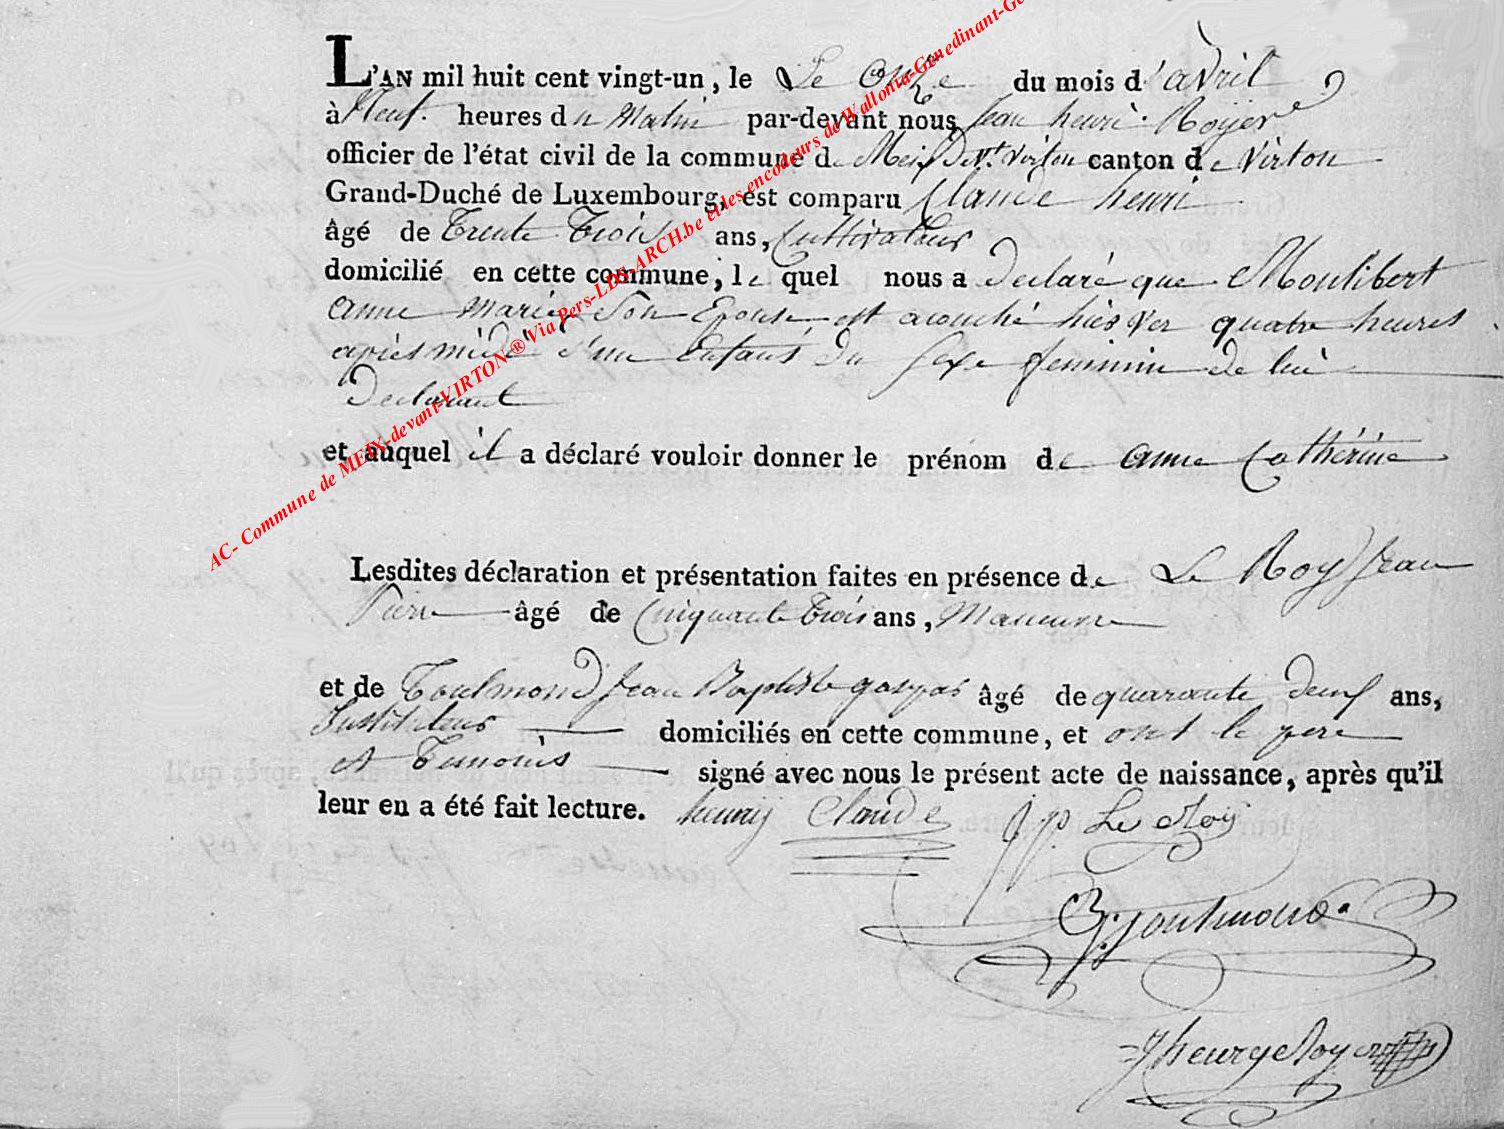 L'AN mil huit cent vingt-un, le Le onze du mois d'avril
à Neuf heures du Matin par-devant nous Jean henri Royer
officier de l'état civil de la commune de Meix Devt. Virton canton de Virton
Grand-Duché de Luxembourg, est comparu Claude henri
âgé de Trente Trois ans, Cultivateur
domicilié en cette commune, le quel nous a declaré que Monlibert
anne marie Son Epouse est acouché hier ver quatre heures
après midi d'un Enfant du Sexe feminin de lui
Declarant
et auquel il a déclaré vouloir donner le prénom de anne Cathérine
Lesdites déclaration et présentation faites en présence de Le Roy Jean
Pierre âgé de Cinquante Trois ans, Maneuvre
et de Toulmond Jean Baptiste gaspar âgé de quarante deux ans,
Instituteur domiciliés en cette commune, et ont le pere
et Temoins signé avec nous le présent acte de naissance, après qu'il
leur en a été fait lecture. henry Claude J. p. Le Roy
J. Toulmond
J henry Royer
AC- Commune de MEIX-devant-VIRTON ® Via Pers-LDS-ARCH.be et les encodeurs de Wallonia-Genedinant-Ge